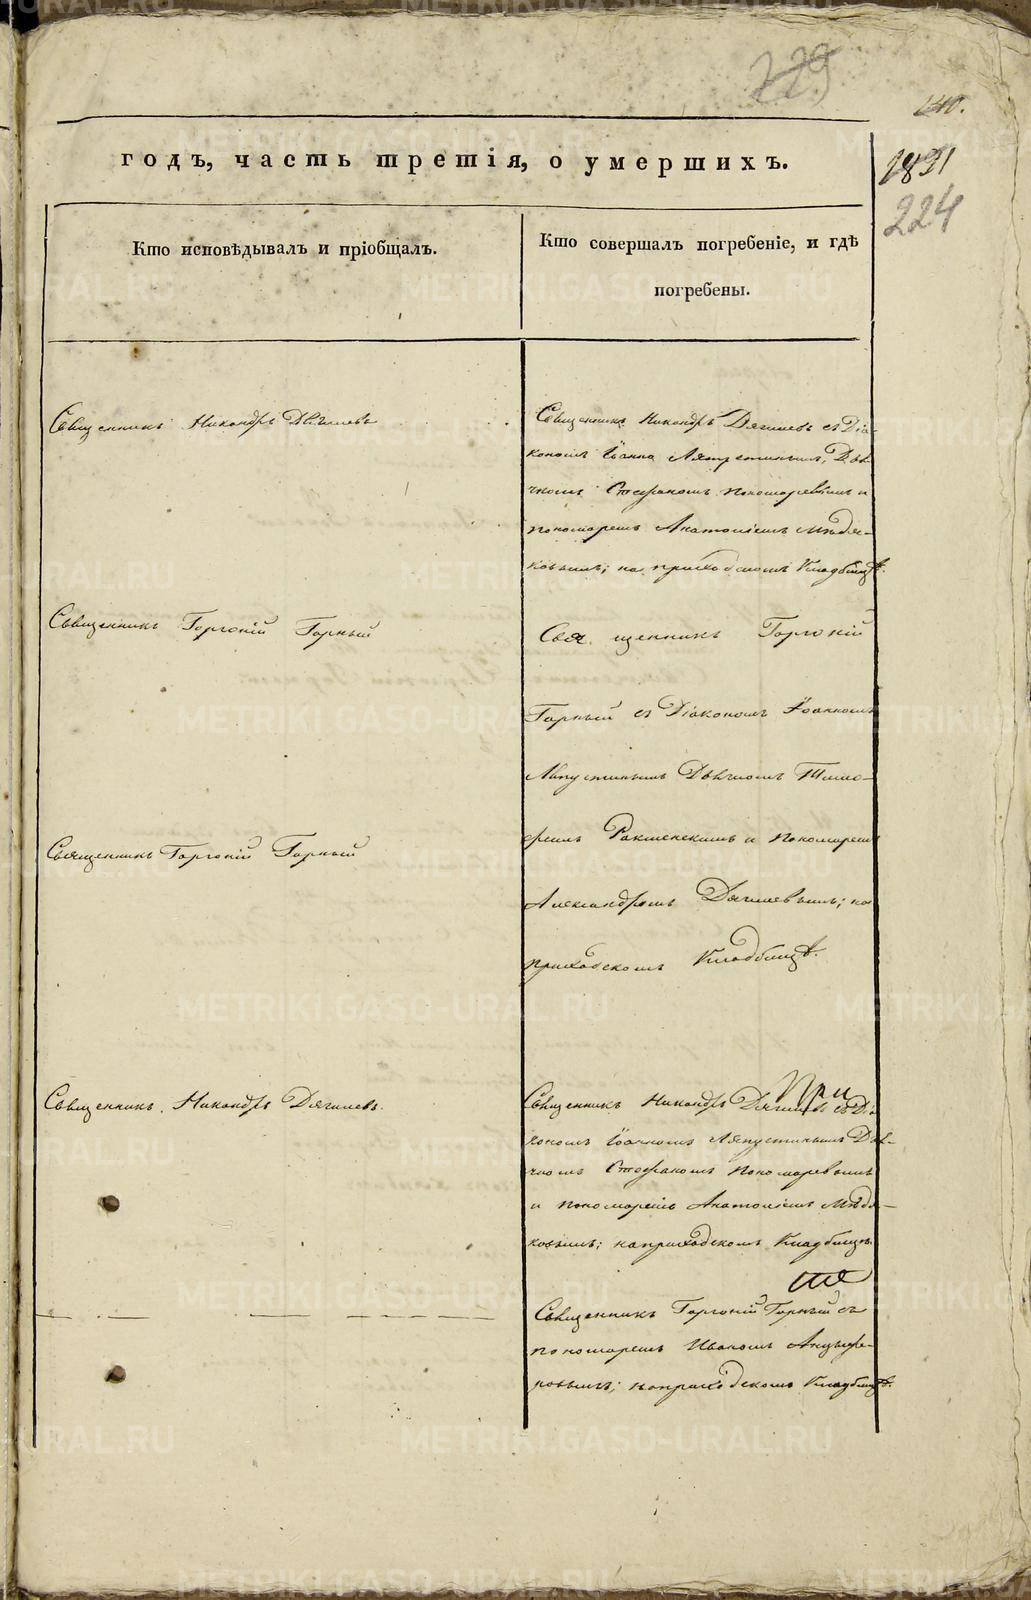 229
140.
годъ, часть третія, о умершихъ.
1831
224
Кто исповѣдывалъ и пріобщалъ.
Кто совершалъ погребеніе, и гдѣ
погребены.
Священникъ Никандръ Дягилевъ
Священникъ Никандръ Дягилевъ съ Діа-
кономъ Іоанно Ляпустинымъ, Дья-
чкомъ Стефаномъ Пономаревымъ и
пономаремъ Анатоліемъ Мѣдя-
ковымъ; на приходскомъ Кладбищѣ.
Священникъ Горгоній Горный
Свя щенникъ Горгоній
Горный съ Діакономъ Іоанномъ
Ляпустинымъ Дьячкомъ Тимо-
феемъ и Пономаремъ
Александромъ Дягилевымъ; на
приходскомъ Кладбищѣ.
Священникъ Горгоній Горный
При
Священникъ Никандръ Дягилевъ.
Священникъ Никандръ Дягилевъ съ Діа
кономъ Іоанномъ Ляпустинымъ Дья-
чкомъ Стефаномъ Пономаревымъ
и пономаремъ Анатоліемъ Мѣдя-
ковымъ; на приходскомъ Кладбищѣ.
Священникъ Горгоній Горный съ
пономаремъ Иваномъ Анцыфе-
ровымъ; на приходскомъ Кладбищѣ.
METRIKI.GASO-URAL.RU